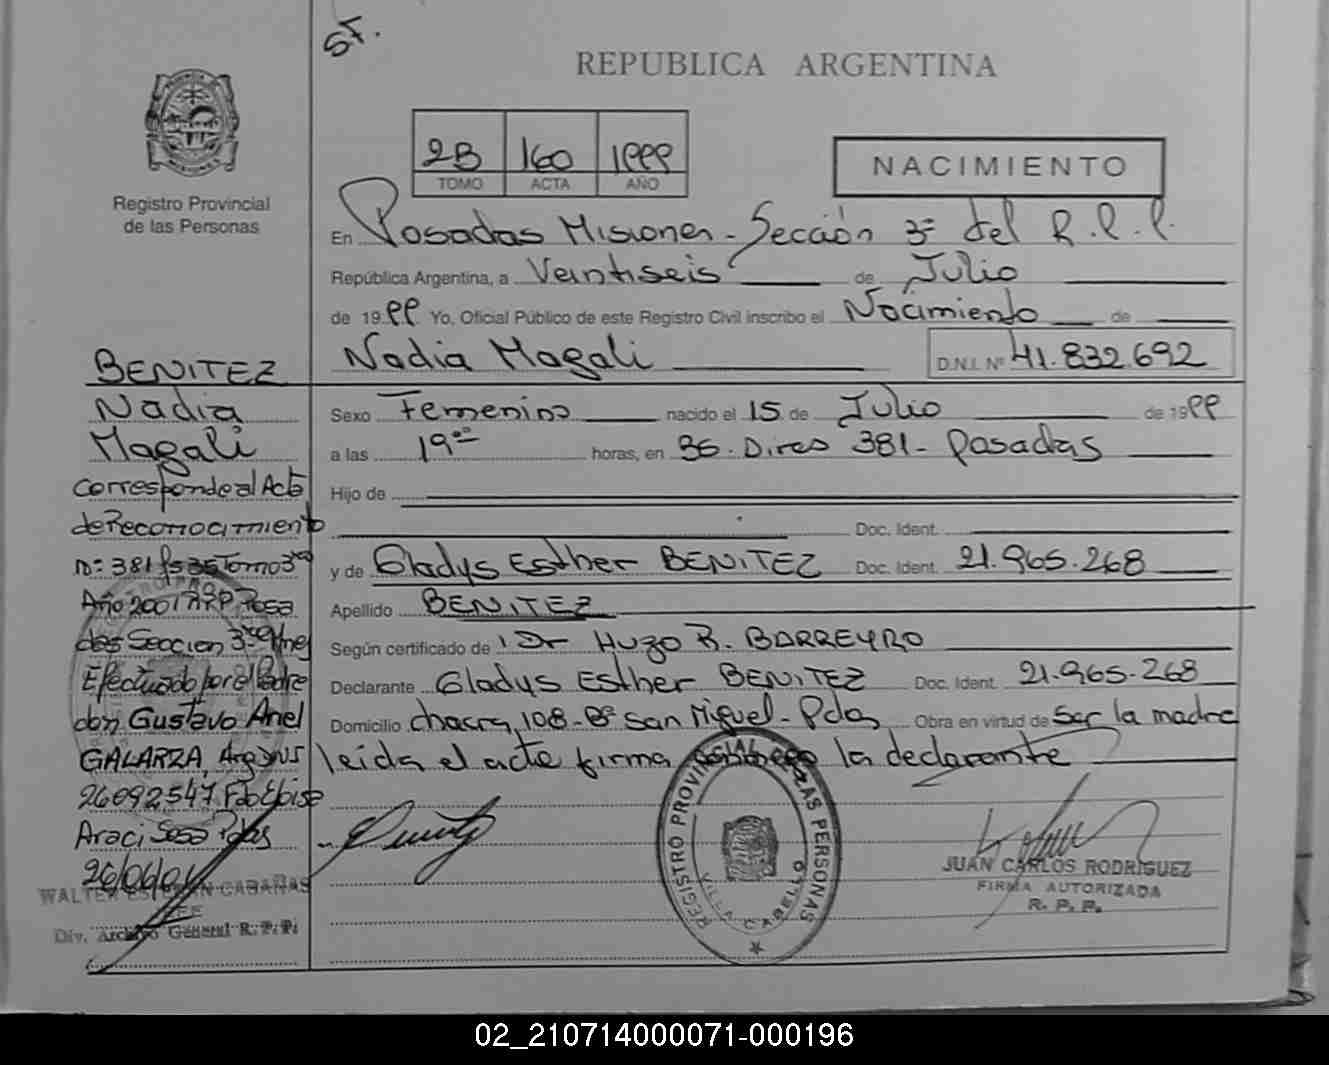 ST.
REPUBLICA ARGENTINA
Registro Provincial
de las Personas
2B 160 1999
TOMO ACTA AÑO
NACIMIENTO
En Posadas Misiones - Sección 3ª del R.P.P.
República Argentina, a Veintiseis de Julio
de 1999 Yo, Oficial Público de este Registro Civil inscribo el Nacimiento de
Nadia Magali D.N.I. Nº 41.832.692
Sexo Femenino nacido el 15 de Julio de 1999
a las 19⁰⁰ horas, en Bs. Aires 381 - Posadas
Hijo de
Doc. Ident.
y de Gladys Esther BENITEZ Doc. Ident. 21.965.268
Apellido BENITEZ
Según certificado de Dr Hugo R. BARREYRO
Declarante Gladys Esther BENITEZ Doc. Ident. 21.965.268
Domicilio chacra 108-Bº San Miguel - Pdas Obra en virtud de Ser la madre
leida el acta firma la declarante
BENITEZ
Nadia
Magali
Corresponde al Acta
de Reconocimiento
nº: 381 fs 35 Tomo 3
Año 2001 RRP Posa
das Seccion 3
Efectuado por el Padre
don Gustavo Ariel
GALARZA, Arg DNI
26092547
Araci Sosa Pdas
26/06/01
WALTER ESTEBAN CABAÑAS
JEFE
Div. Archivo General R.P.P.
REGISTRO PROVINCIAL DE LAS PERSONAS
VILLA CABELLO
JUAN CARLOS RODRIGUEZ
FIRMA AUTORIZADA
R. P. P.
02_210714000071-000196